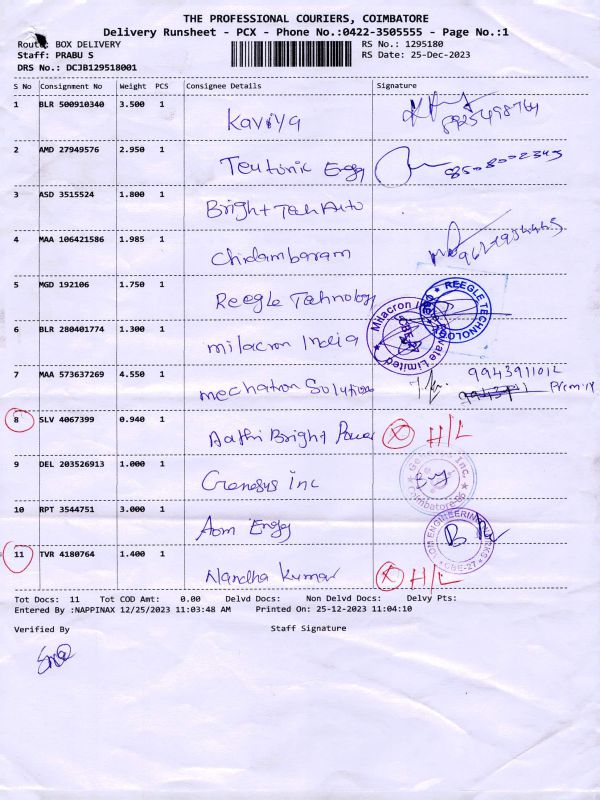 THE PROFESSIONAL COURIERS, COIMBATORE
Delivery Runsheet - PCX - Phone No.:0422-3505555 - Page No.:1
Route: BOX DELIVERY RS No.: 1295180
Staff: PRABU S RS Date: 25-Dec-2023
DRS No.: DCJB129518001
S No Consignment No Weight PCS Consignee Details Signature
1 BLR 500910340 3.500 1 Kaviya
2 AMD 27949576 2.950 1 Teutonic Engg 8508002345
3 ASD 3515524 1.800 1 Bright Tech Auto
4 MAA 106421586 1.985 1 Chidambaram
5 MGD 192106 1.750 1 Reegle Technology REEGLE TECHNOLOGY
6 BLR 280401774 1.300 1 milacron India Milacron India Private Limited
7 MAA 573637269 4.550 1 mechatron Solutions 9943911012
8 SLV 4067399 0.940 1 Aathi Bright Power X H/L
9 DEL 203526913 1.000 1 Genesys inc Genesys Inc. Coimbatore
10 RPT 3544751 3.000 1 Aom Engg AOM ENGINEERING WORKS CBE-27
11 TVR 4180764 1.400 1 Nandha Kumar X H/L
Tot Docs: 11 Tot COD Amt: 0.00 Delvd Docs: Non Delvd Docs: Delvy Pts:
Entered By :NAPPINAX 12/25/2023 11:03:48 AM Printed On: 25-12-2023 11:04:10
Verified By Staff Signature